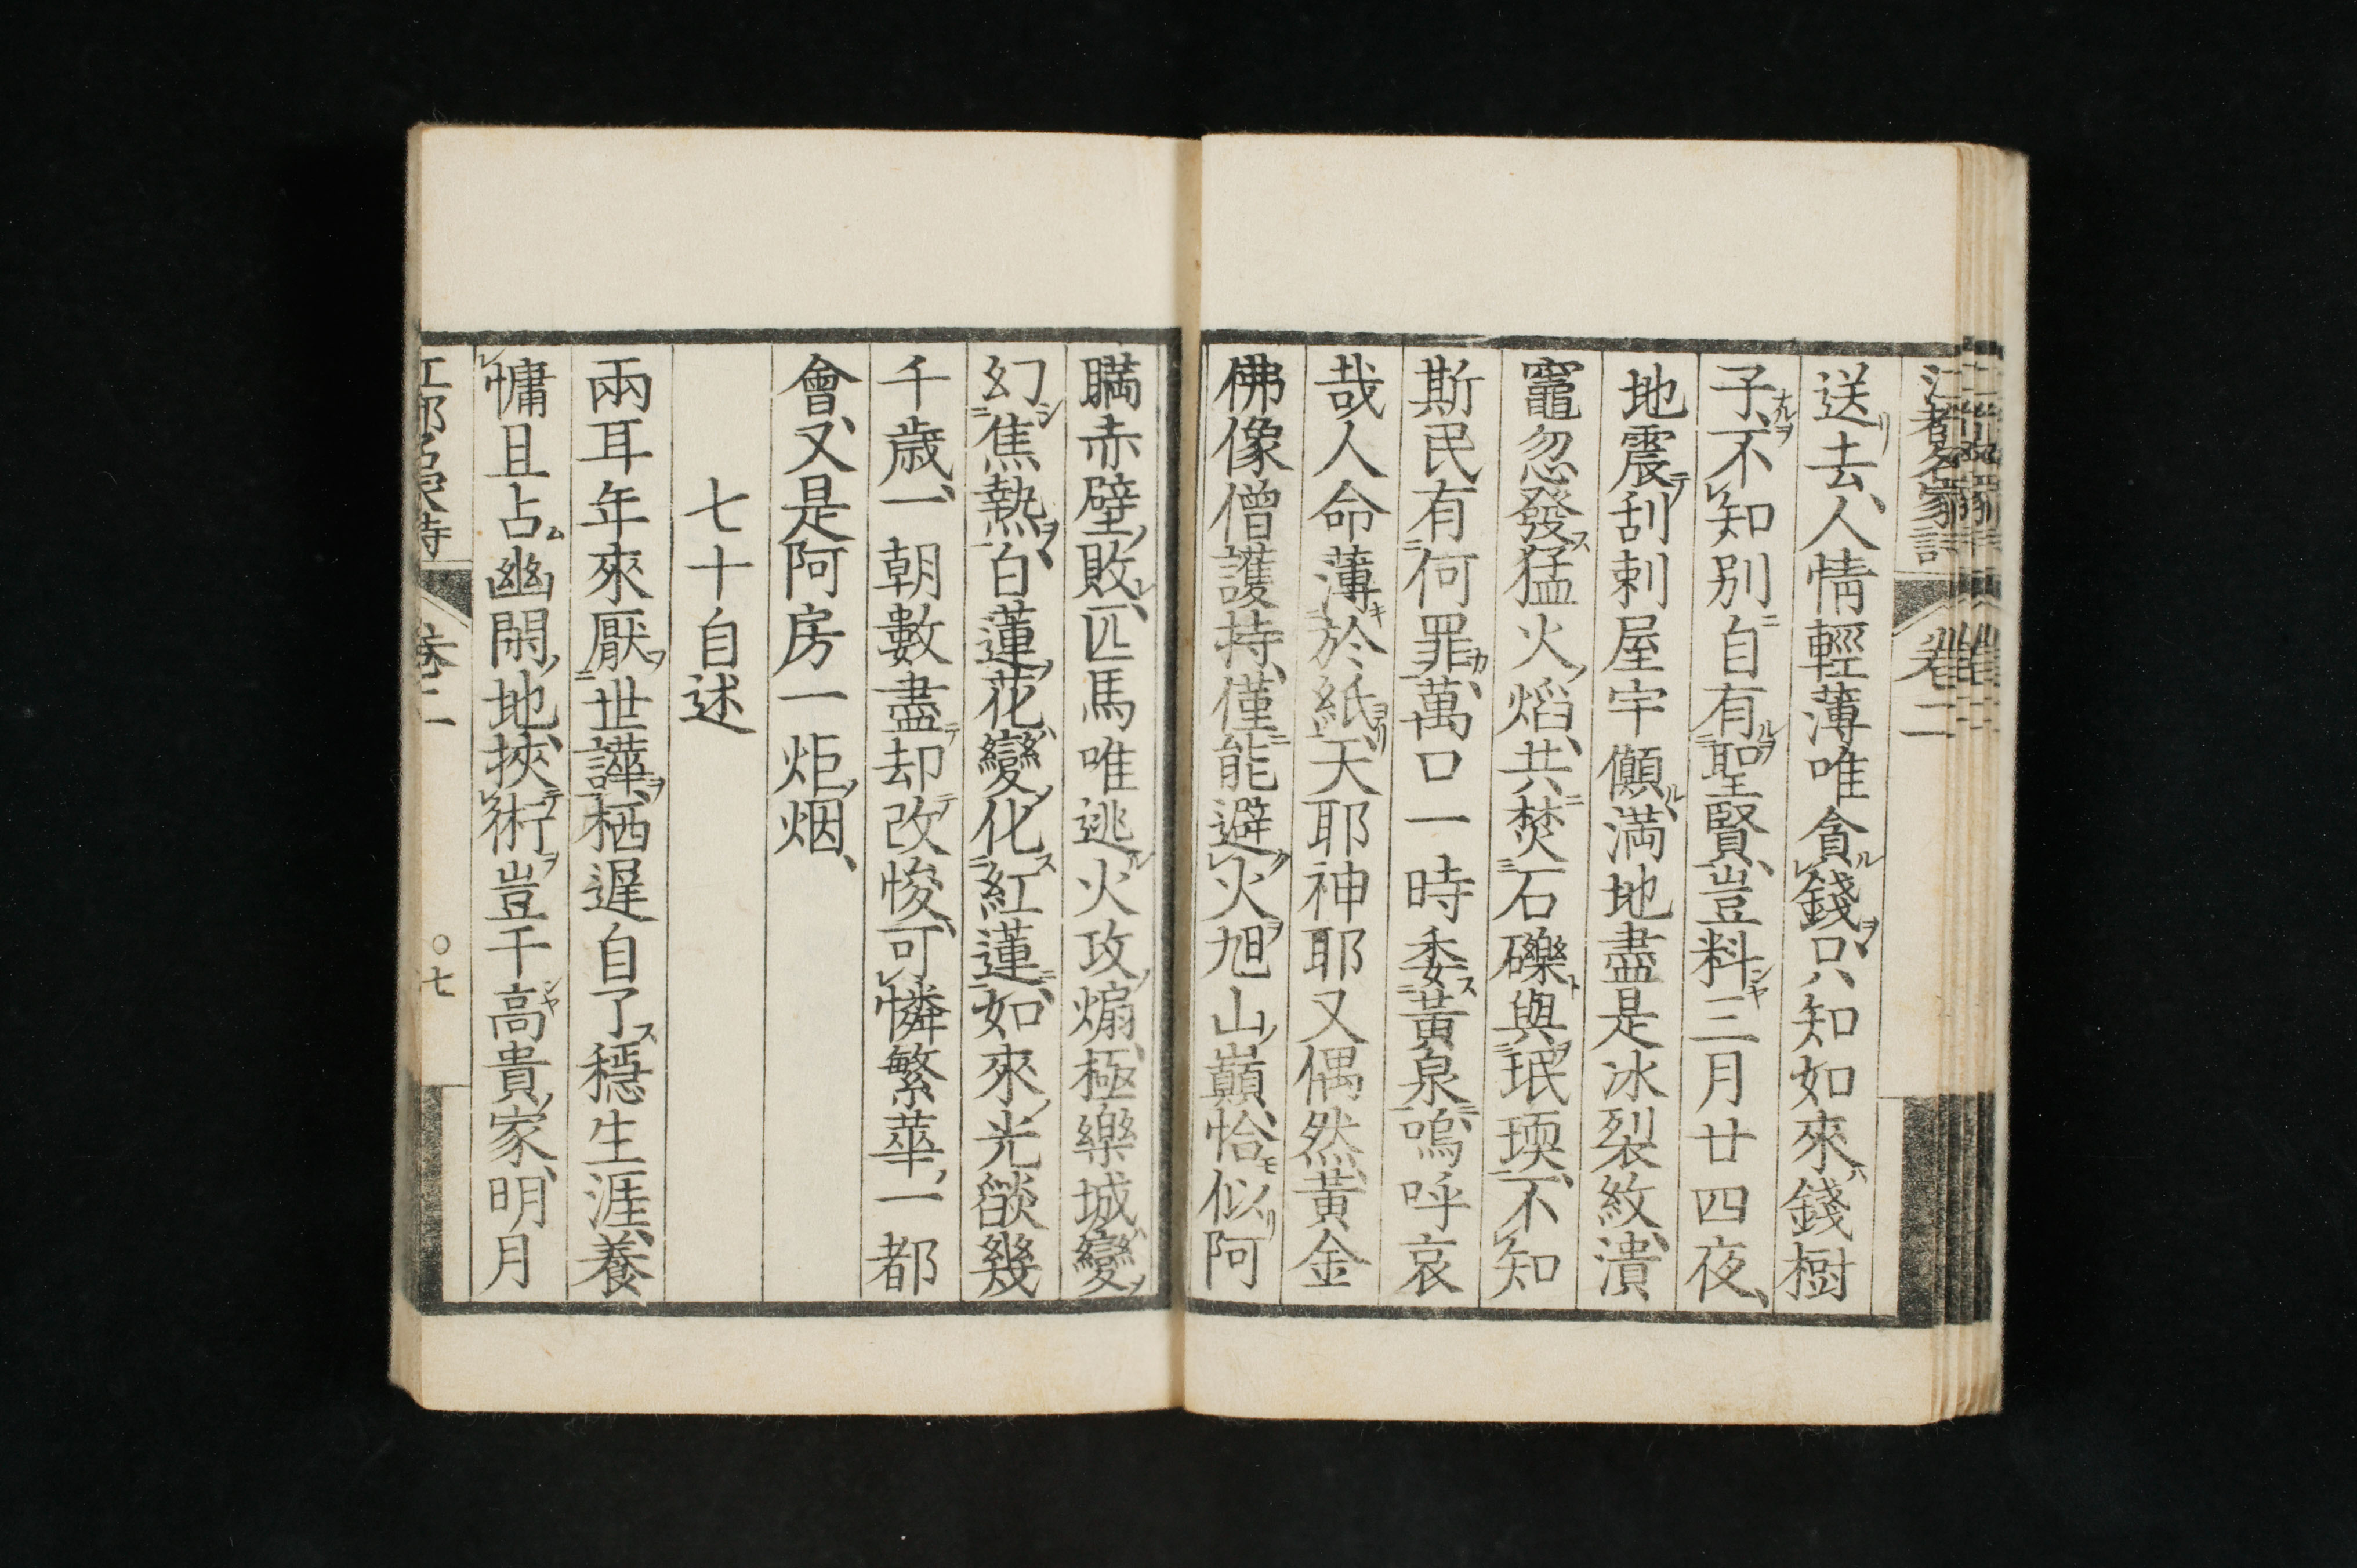 江都名家詩 卷二
送去、人情輕薄唯貪錢、只知如來錢樹
子、不知別自有聖賢、豈料三月廿四夜、
地震刮剌屋宇顚、満地盡是冰裂紋、潰
竈忽發猛火焰、共焚石礫與珉瑌、不知
斯民有何罪、萬口一時委黃泉、嗚呼哀
哉人命薄於紙、天耶神耶又偶然、黃金
佛像僧護持、僅能避火旭山巓、恰似阿
瞞赤壁敗、匹馬唯逃火攻煽、極樂城變
幻焦熱、白蓮花變化紅蓮、如來光燄幾
千歳、一朝數盡却改悛、可憐繁華一都
會、又是阿房一炬烟、
七十自述
兩耳年來厭世譁、栖遲自了穩生涯、養
慵且占幽閑地、挾術豈干高貴家、明月
江都名家詩 卷二 〇七